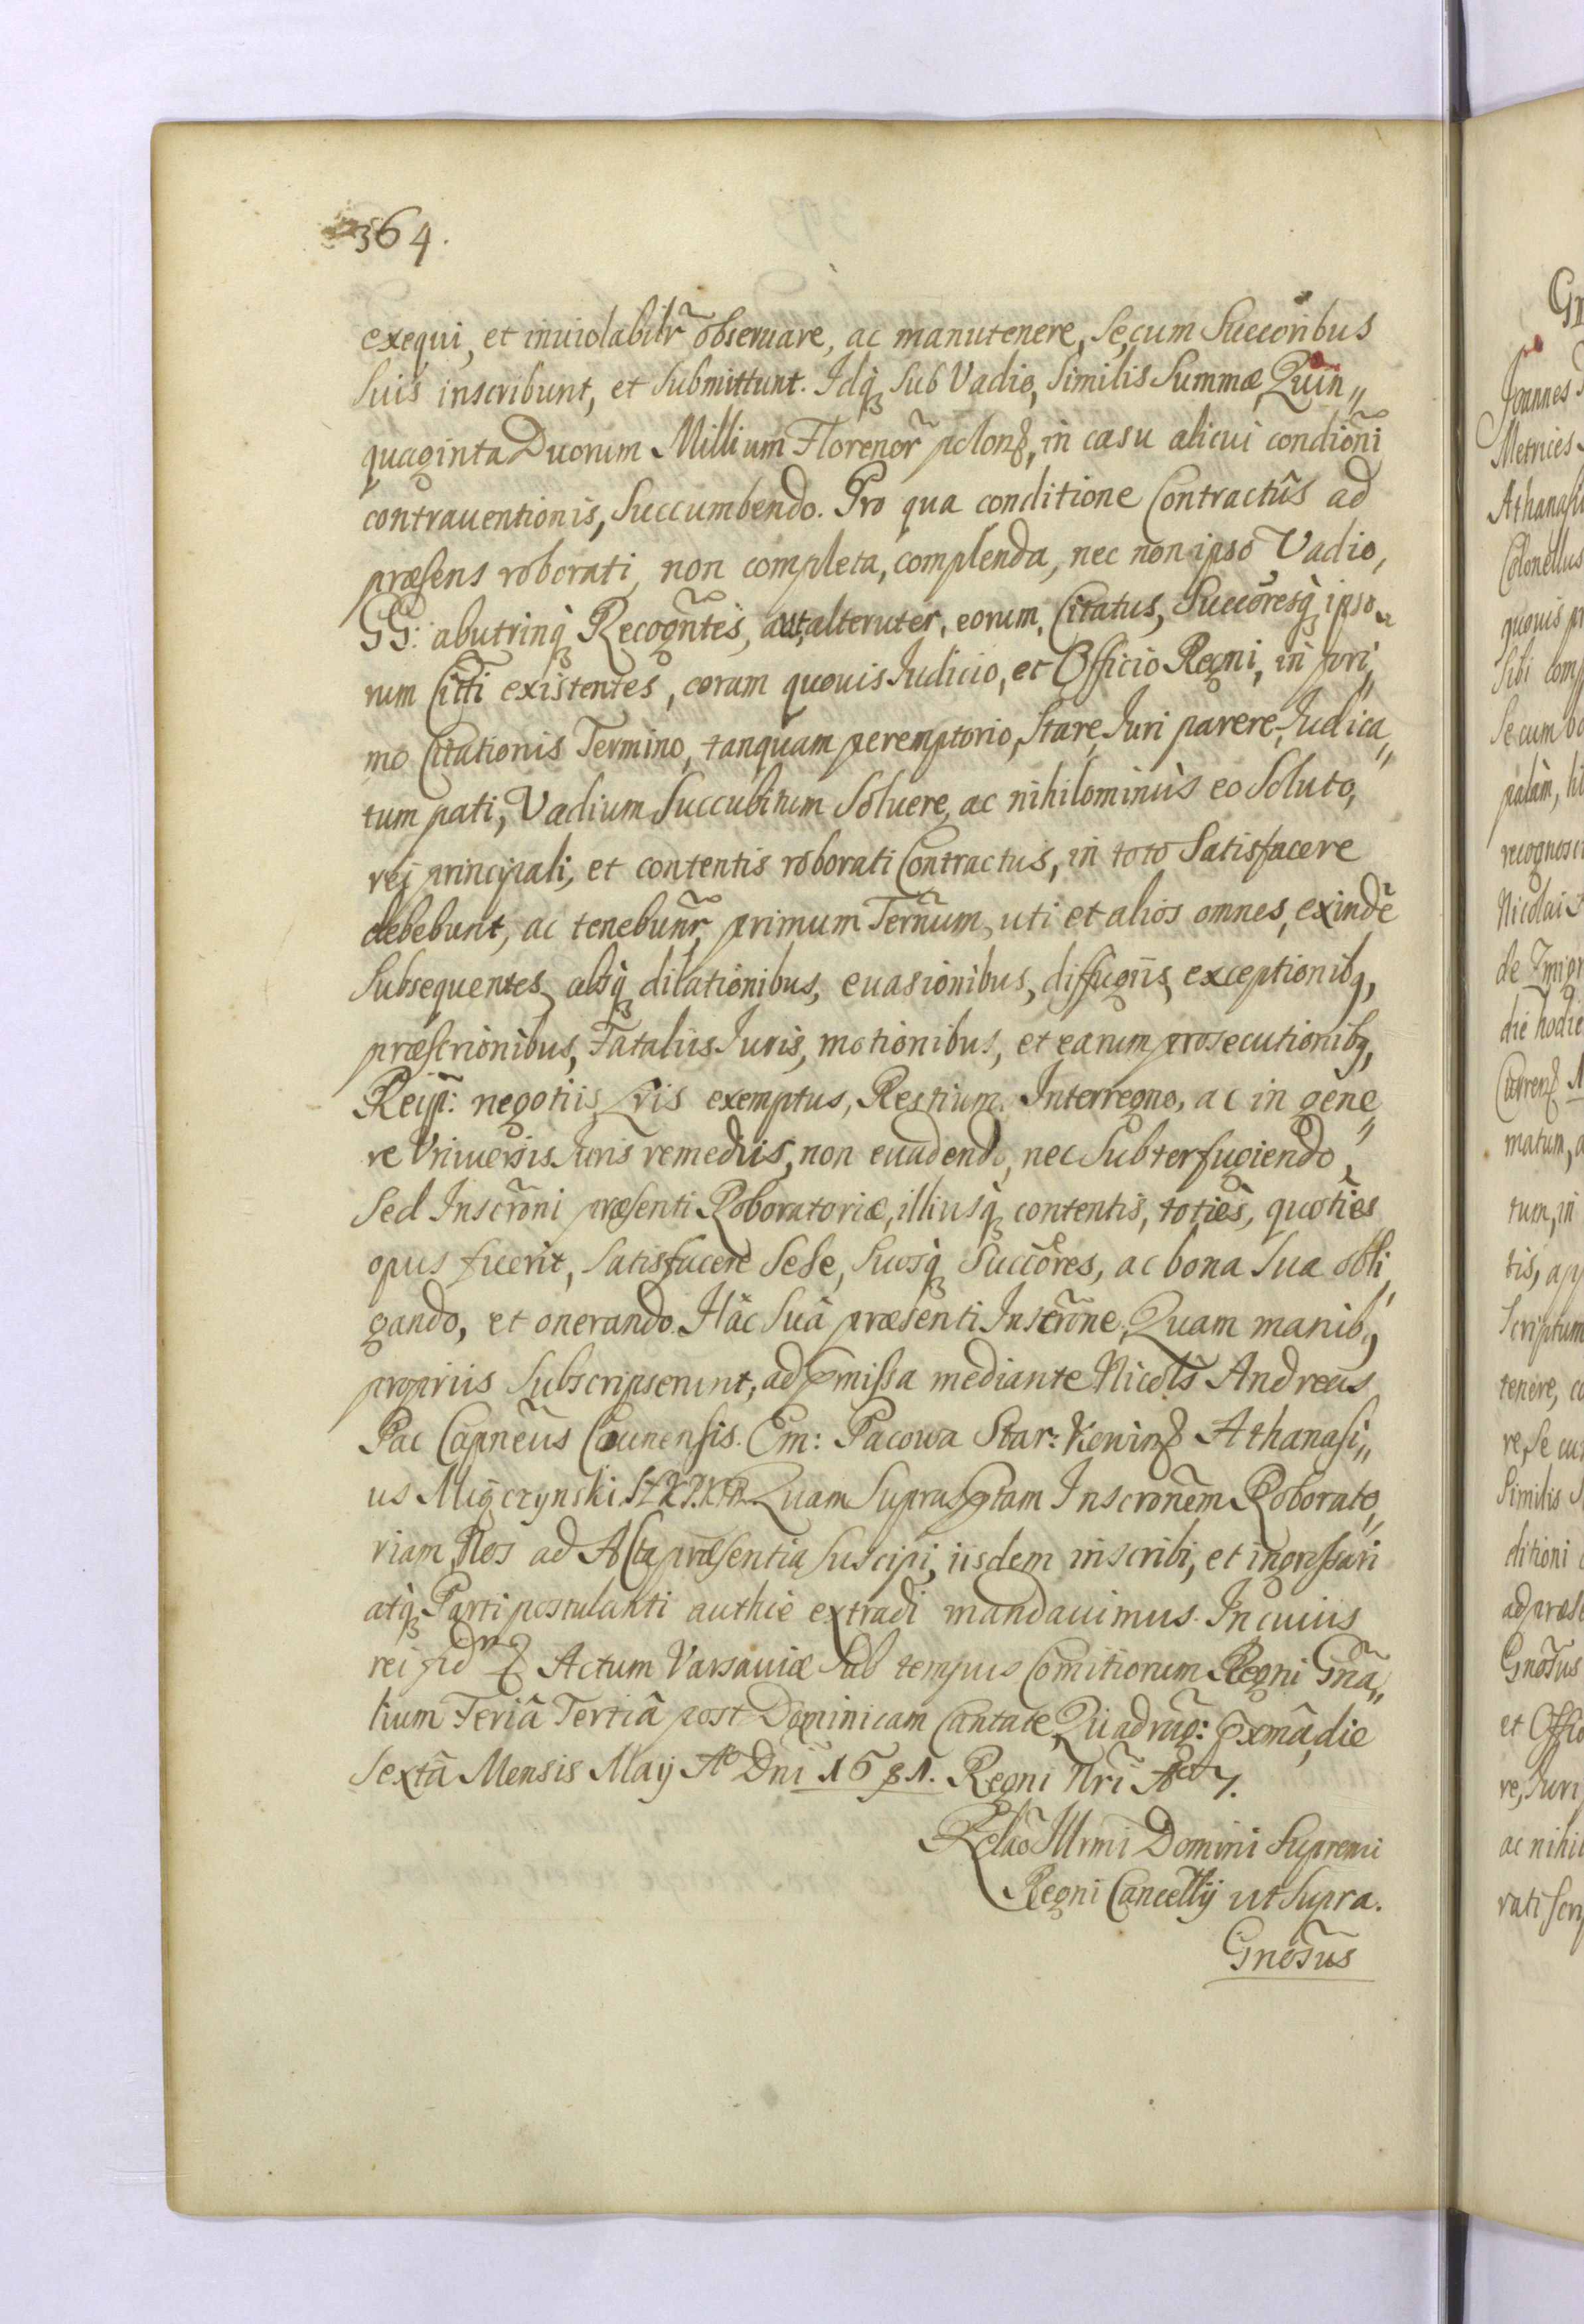 364.
exequi, et inuiolabilr̃ obseruare, ac manutenere, Se, cum Succoribus
Suis inscribunt, et submittunt. Idq́ȝ sub Vadio, Similis Summæ Quin„
quaginta Duorum Millium Florenor̃ polonȝ, in casu alicui condiõni
contrauentionis, Succumbendo. Pro qua conditione Contractûs ad
præsens roborati, non completa, complenda, nec non ipso Vadio,
GG: abutrinq́ȝ Recogñtes, aut, alteruter, eorum, Citatus, Succoresq́ȝ ipso„
rum Citti existentes, coram quouis Iudicio, et Officio Regni, in pri„
mo Citationis Termino, tanquam peremptorio, Stare, Iuri parere, Iudica„
tum pati, Vadium Succubitum Soluere, ac nihilominùs eo Soluto,
rej principali, et contentis roborati Contractus, in toto Satisfacere
debebunt, ac tenebunr̃, primum Terñum, uti et alios omnes, exindẽ
Subsequentes, absq́ȝ dilationibus, euasionibus, diffugiis, exceptionibȝ,
præscrionibus, Fataliis Iuris, motionibus, et earum prosecutionibȝ,
Reip̃: negotiis, Lris exemptus, Restium. Interregno, ac in gene„
re Vniuersis Iuris remediis, non euadendo, nec Subterfugiendo,
Sed Inscr̃oni præsenti Roboratoriæ, illiusq́ȝ contentis, toties, quoties
opus fuerit, Satisfacere Sese, Suosq́ȝ Succores, ac bona Sua obli„
gando, et onerando. Hâc Suâ præsenti Inscr̃one. Quam manibȝ,
propriis Subscripserunt, ad p̱missa mediante Nicol̃s Andreas
Pac Capñeus Caunensis. Em: Pacowa Star: Kowinȝ Athanasi„
us Miączynski St. K. P. K. P. Quam Suprasptam Inscronem Roborato„
riam, Nos ad Acta præsentia, suscipi, iisdem inscribi, et ingrssari
atq́ȝ Parti postulanti authie extradi mandauimus. In cuius
rei fidᵐ ȝ Actum Varsauiæ Sub tempus Comitiorum Regni Gña„
lium Feriâ Tertiâ post Dominicam Cantate, Quadrag: p̱xmâ, die
Sextâ Mensis Maij Aº Dñi 1681. Regni Nr̃i Aº 7.
Relaõ Illrmi Domini Supremi
Regni Cancellrij ut Supra.
Gnõsus